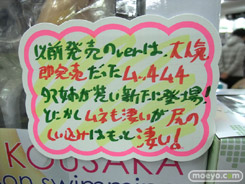 以前発売のverは、大人気
即完売だった4.4.44
タマ姉が装い新たに登場!
しかしムネも凄いが尻の
くい込みはもっと凄い!
KOUSAKA
on swimsui
moeyo.com